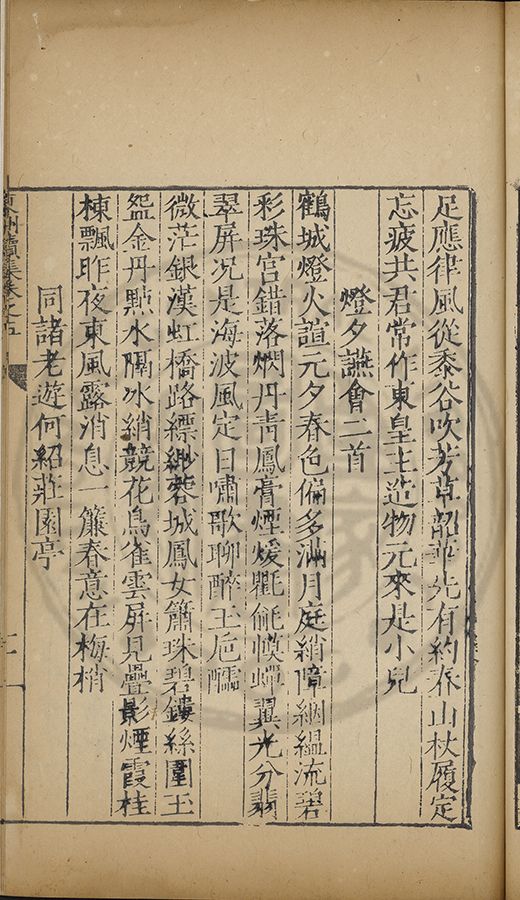 足應律風從黍谷吹芳草韶華先有約春山杖履定
忘疲共君常作東皇主造物元來是小兒
燈夕讌會二首
鶴城燈火諠元夕春色偏多滿月庭綃障絪緼流碧
彩珠宮錯落爛丹青鳳膏煙煖氍毹幙蟬翼光分翡
翠屏况是海波風定日嘯歌聊醉玉巵醽
微茫銀漢虹橋路縹緲蓉城鳳女簫珠碧鏤絲圍玉
盌金丹㸃水隔冰綃競花鳥雀雲屏見疊影煙霞桂
棟飄昨夜東風露消息一簾春意在梅梢
同諸老遊何紹莊園亭
續集卷之五